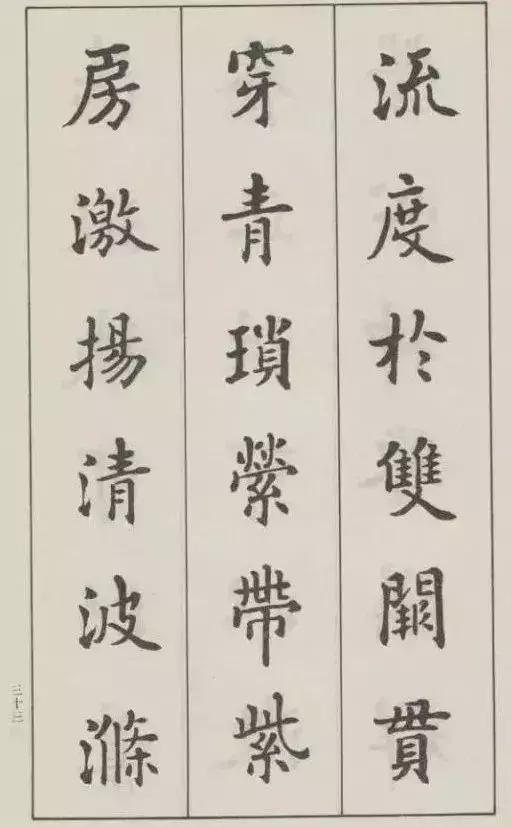 流度於雙闕貫
穿青瑣縈帶紫
房激揚清波滌
三十三